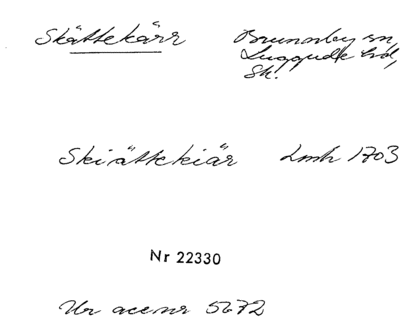 Skättekärr Brunnby sn,
Luggude hd,
Sk.
Skiättekiär Lmh 1703
Nr 22330
Ur acc nr 5672